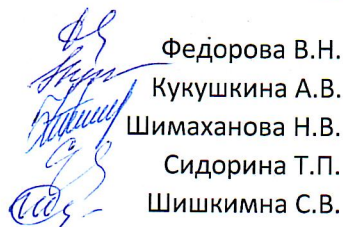 Федорова В.Н.
Кукушкина А.В.
Шимаханова Н.В.
Сидорина Т.П.
Шишкимна С.В.